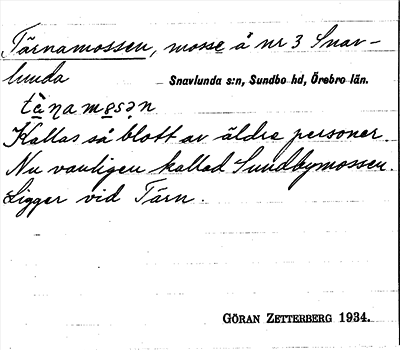 Tärnamossen, mosse å nr 3 Snav-
lunda
Snavlunda s:n, Sundbo hd, Örebro län.
tä̀ɳamo̥sə̣n
Kallas så blott av äldre personer.
Nu vanligen kallad Sundbymossen.
Ligger vid Tärn.
GÖRAN ZETTERBERG 1934.